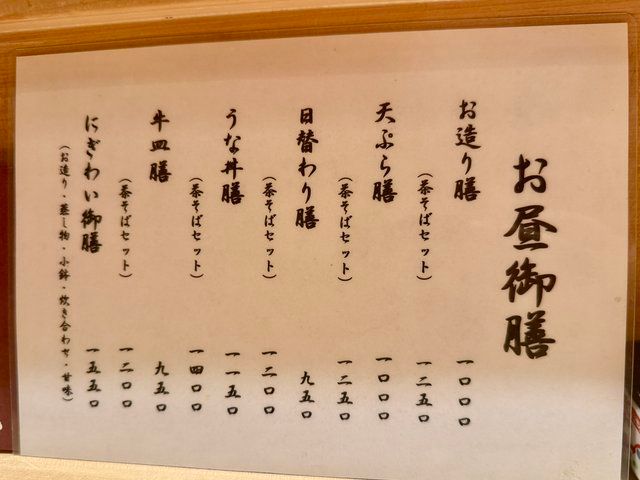 お昼御膳
お造り膳 一〇〇〇
（茶そばセット） 一二五〇
天ぷら膳 一〇〇〇
（茶そばセット） 一二五〇
日替わり膳 九五〇
（茶そばセット） 一二〇〇
うな丼膳 一一五〇
（茶そばセット） 一四〇〇
牛皿膳 九五〇
（茶そばセット） 一二〇〇
にぎわい御膳 一五五〇
（お造り・蒸し物・小鉢・炊き合わせ・甘味）